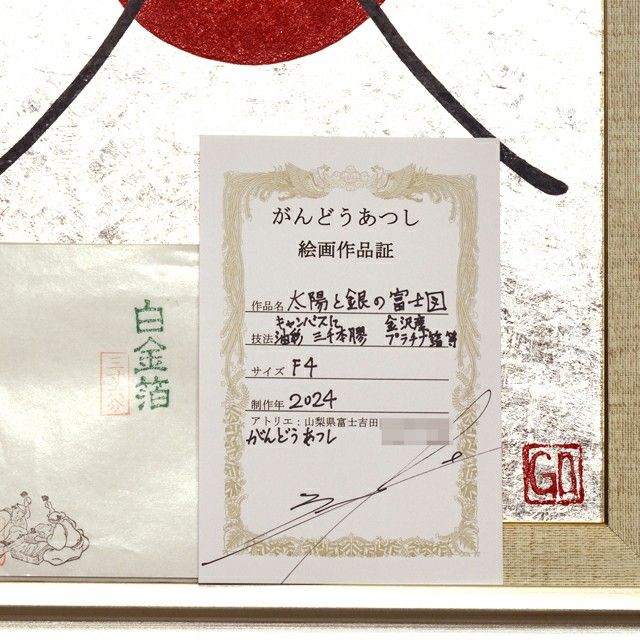 がんどうあつし
絵画作品証
作品名 太陽と銀の富士図
キャンバスに 金沢産
技法 油彩 三千本膠 プラチナ箔 等
サイズ F4
制作年 2024
アトリエ：山梨県富士吉田
がんどうあつし
白金箔